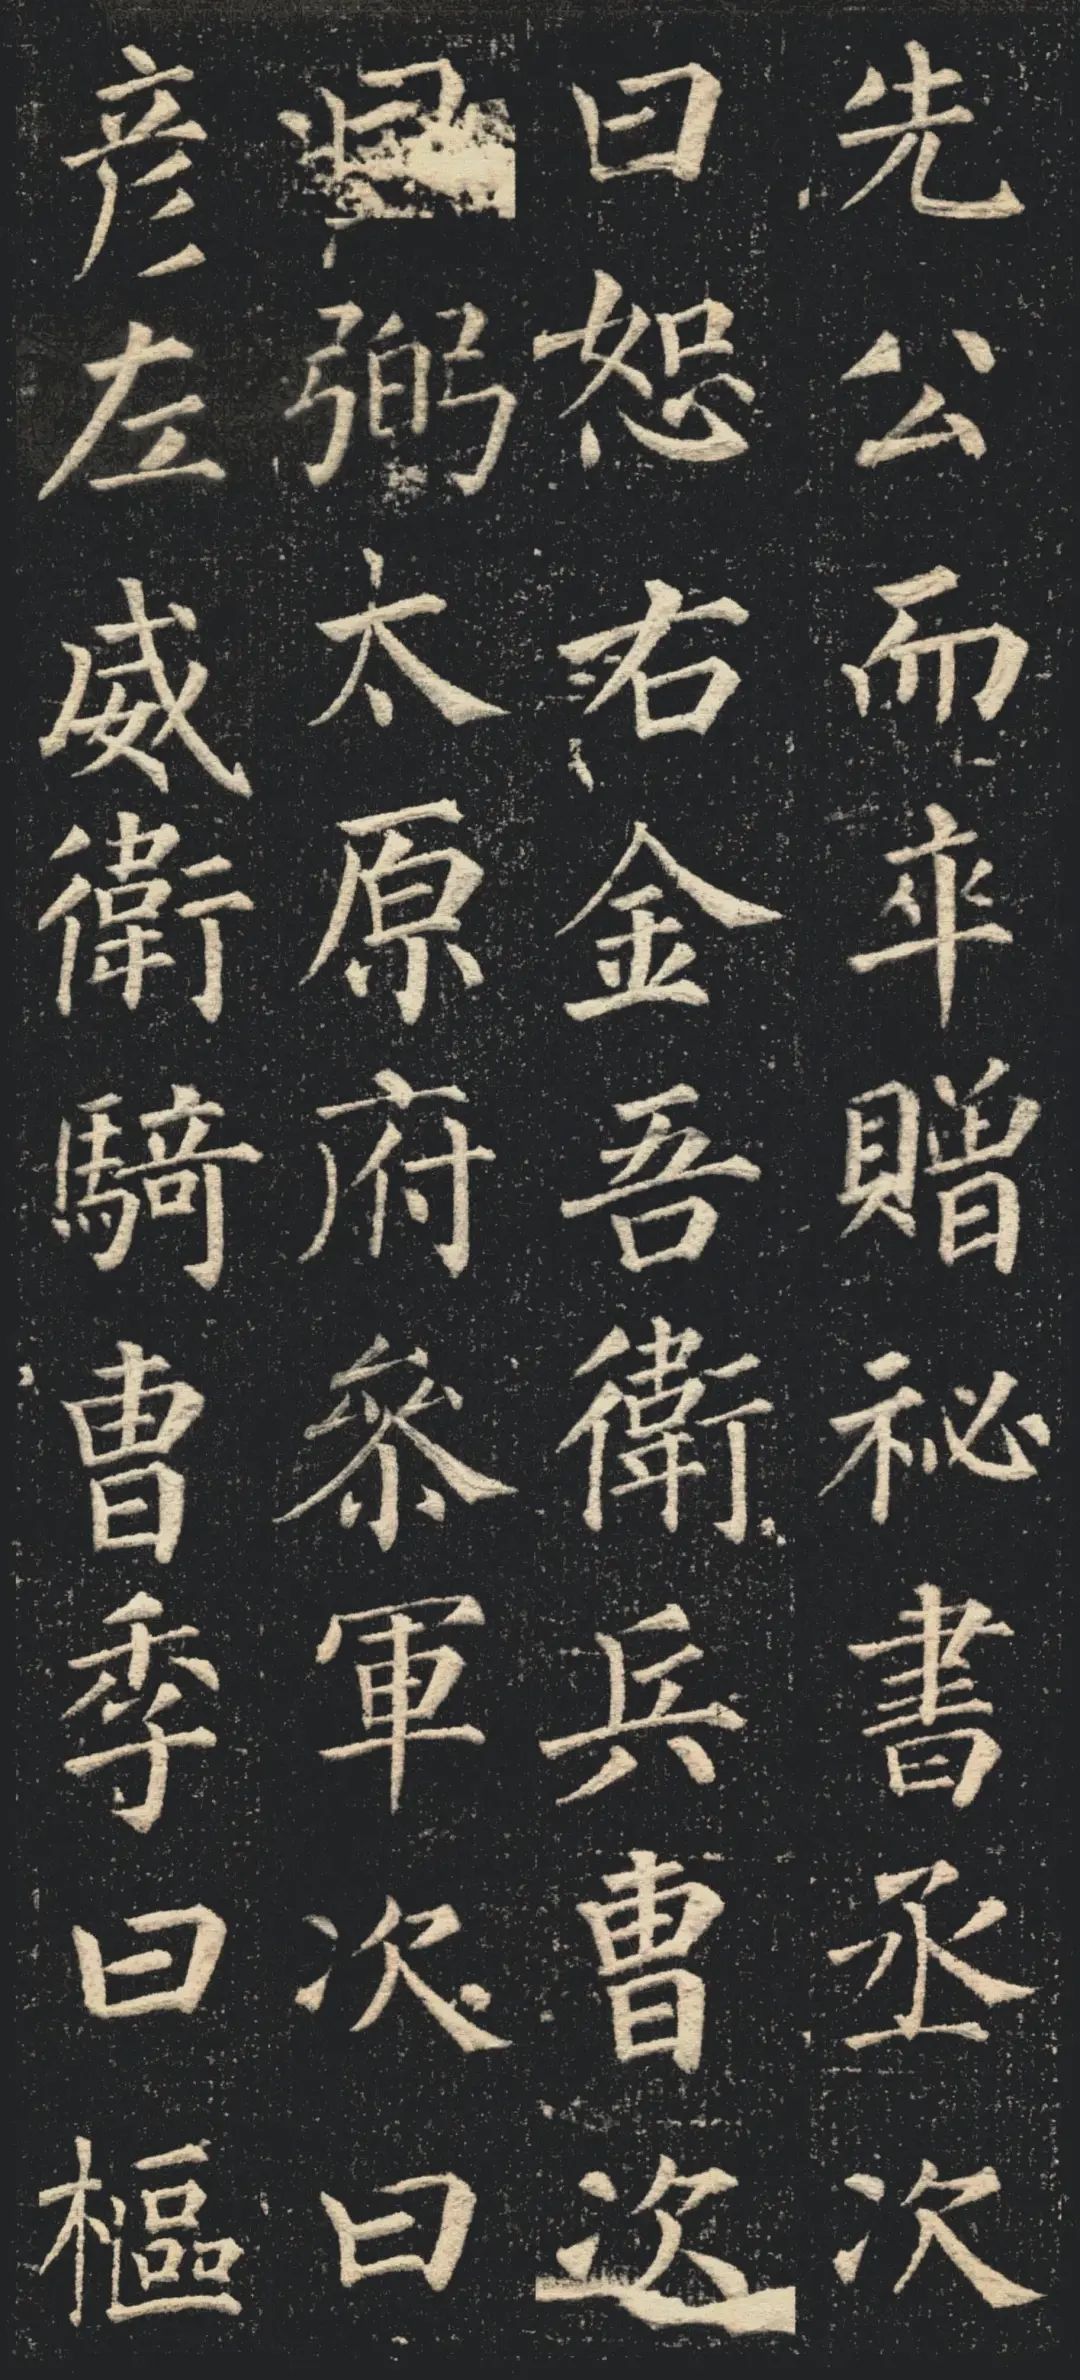 先公而卒贈祕書丞次
曰恕右金吾衛兵曹次
弼太原府參軍次曰
彥左威衛騎曹季曰樞